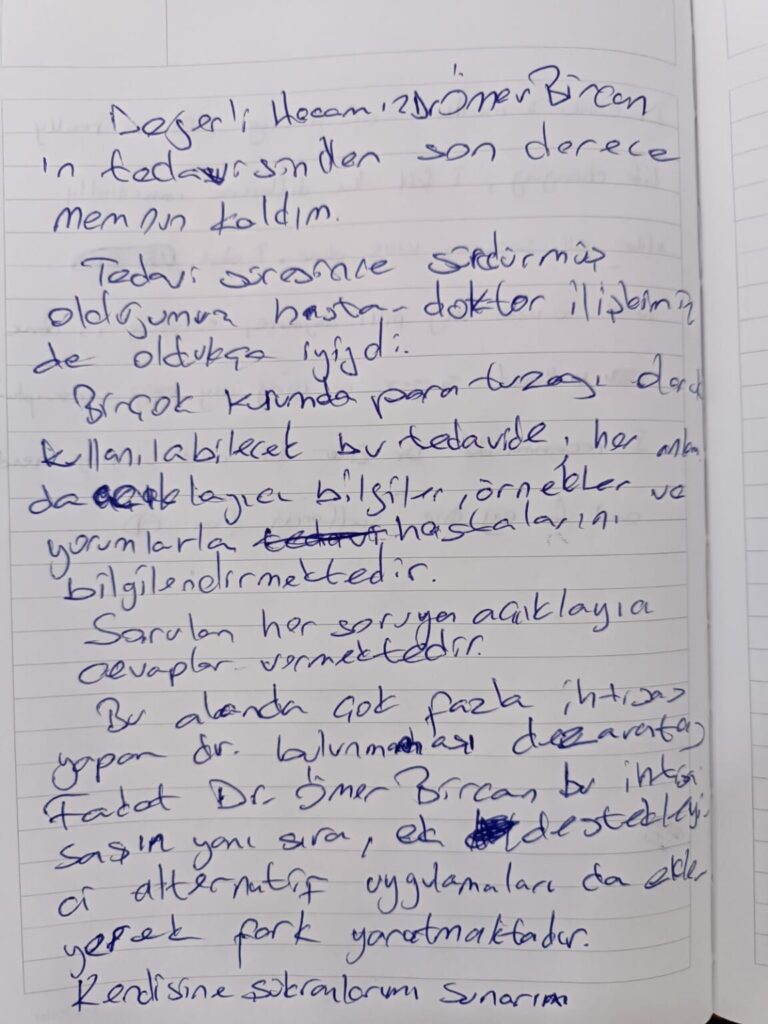 Değerli Hocamız Dr Ömer Bircan
ın tedavisinden son derece
memnun kaldım.
Tedavi süresince sürdürmüş
olduğumuz hasta-doktor ilişkimiz
de oldukça iyiydi.
Birçok kurumda para tuzağı olarak
kullanılabilecek bu tedavide, her anlam
da açıklayıcı bilgiler, örnekler ve
yorumlarla hastalarını
bilgilendirmektedir.
Sorulan her soruya açıklayıcı
cevaplar vermektedir.
Bu alanda çok fazla ihtisas
yapan dr. bulunmaması dezavantaj
Fakat Dr. Ömer Bircan bu ihtisa
sasın yanı sıra, ek destekleyi-
ci alternatif uygulamaları da ekle
yerek fark yaratmaktadır.
Kendisine şükranlarımı sunarım